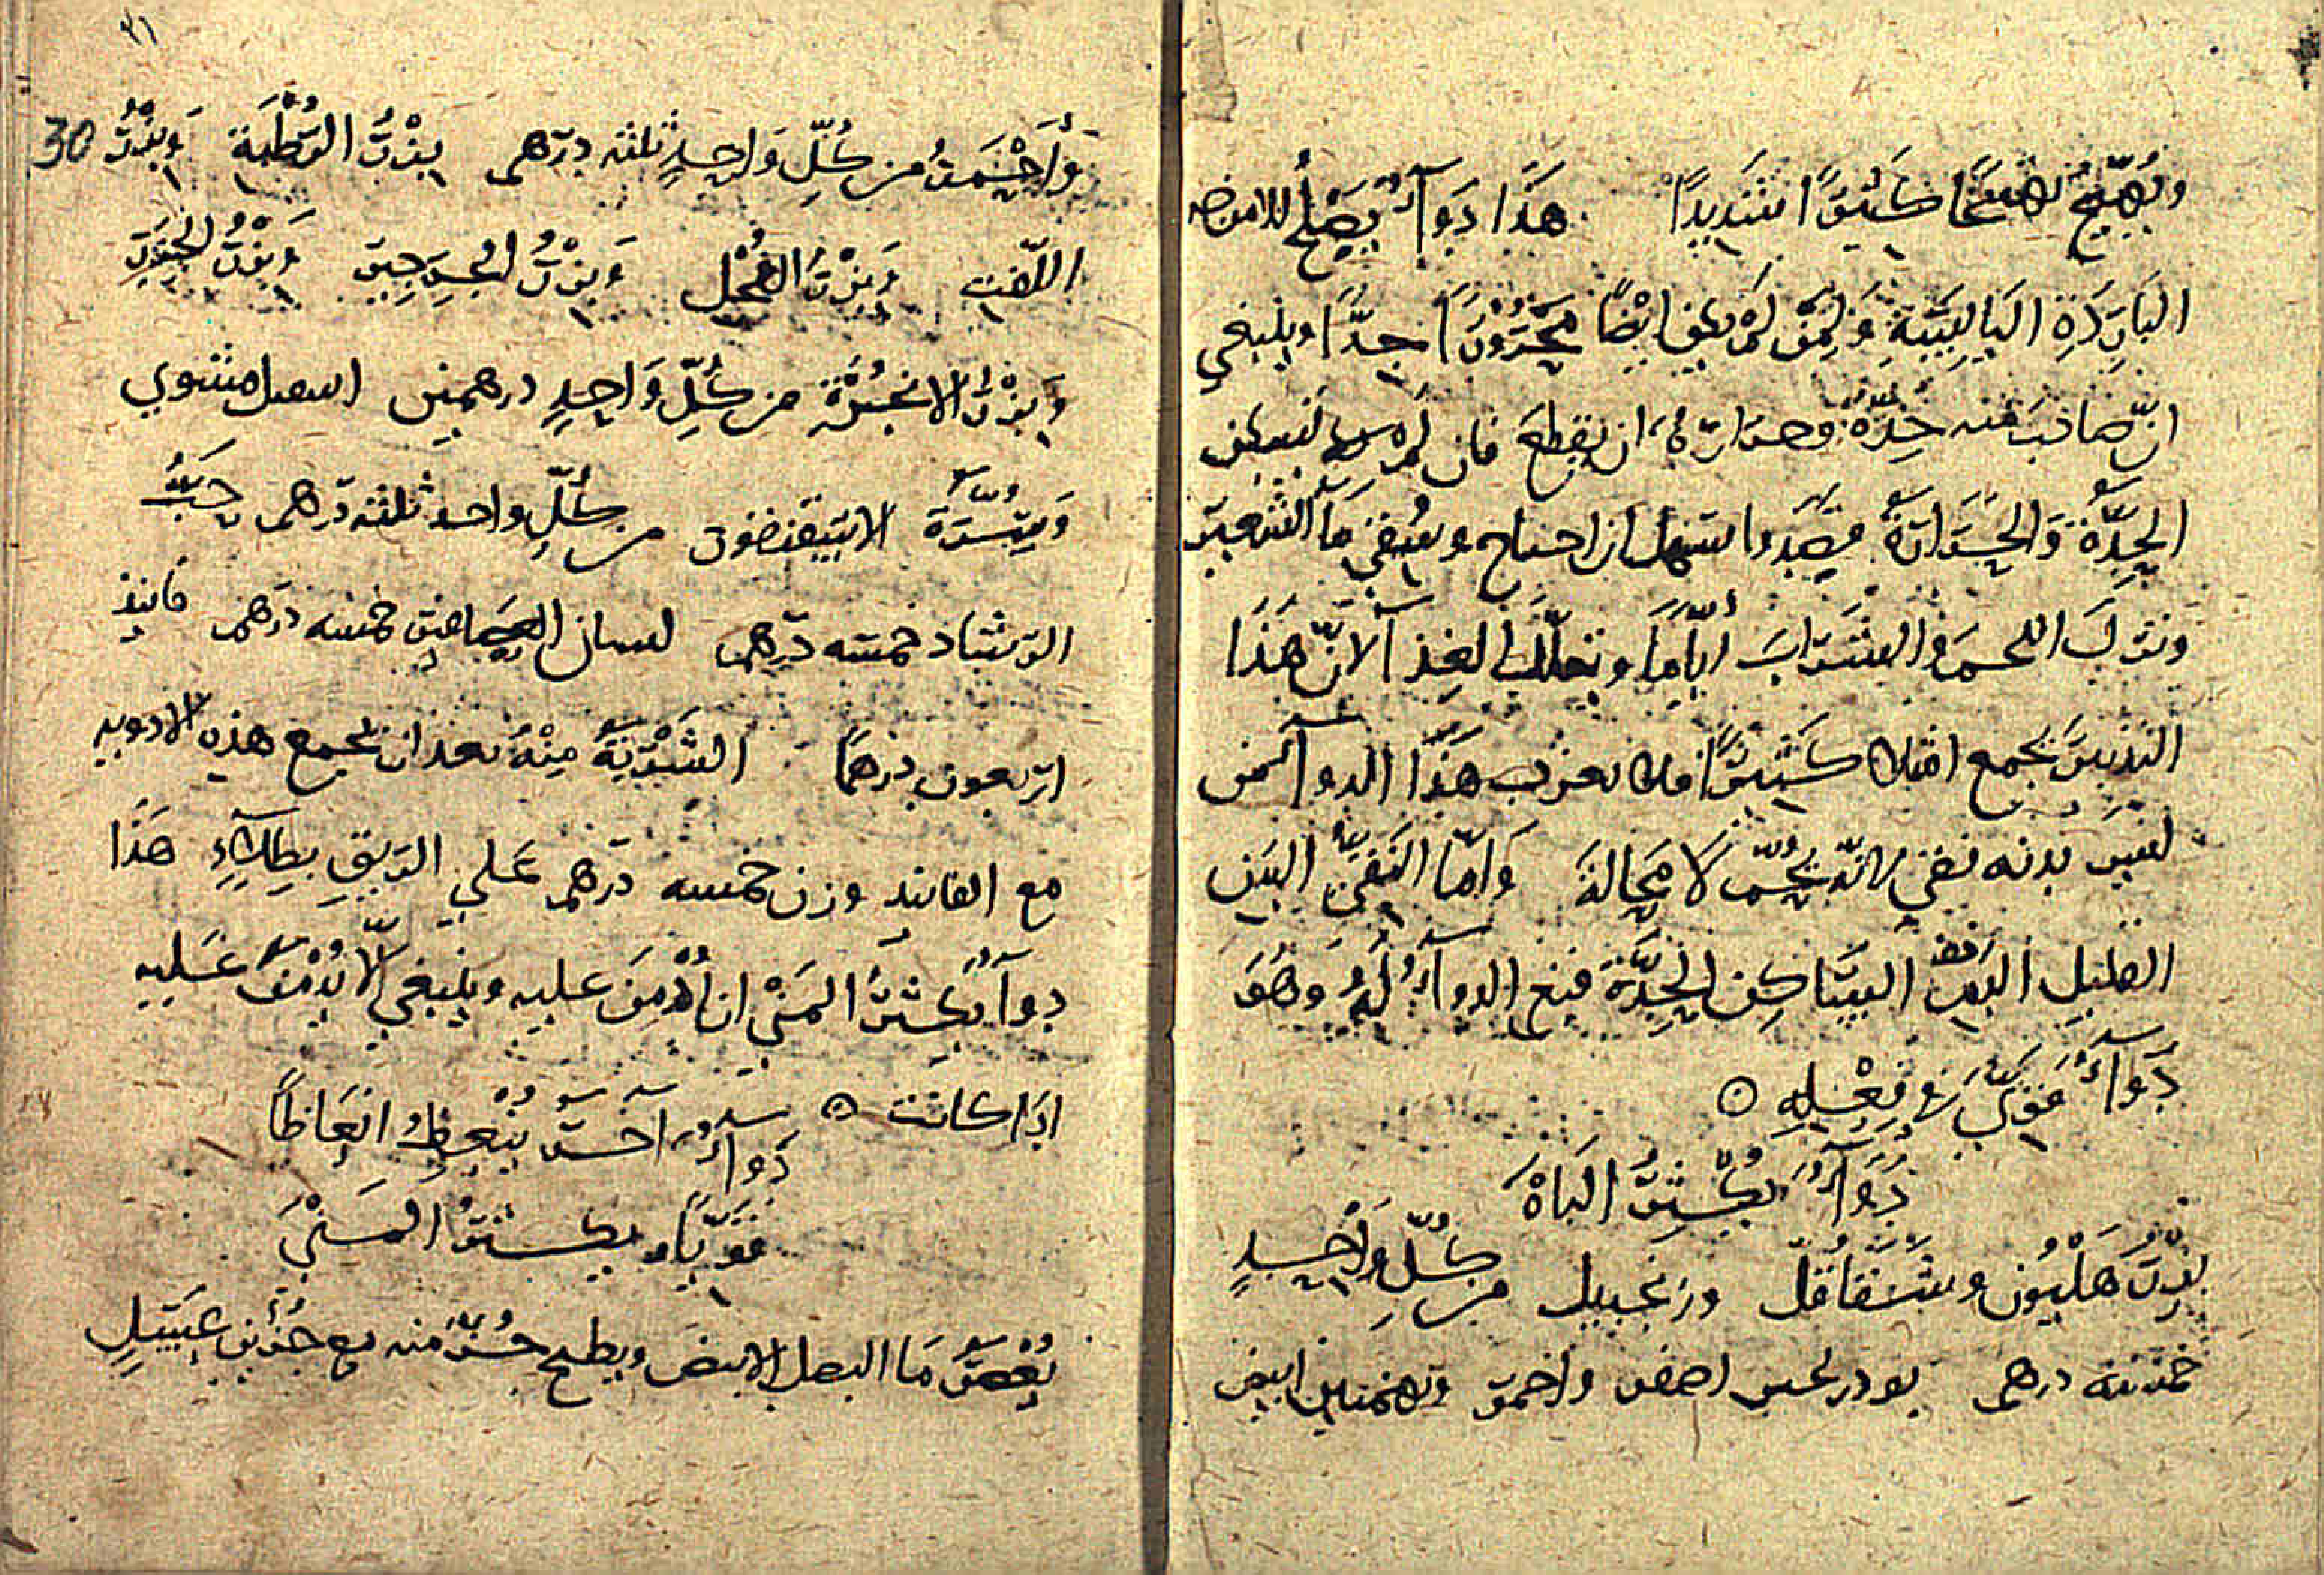 ويُهَيِّجُ تهيّجًا كثيرًا شَدِيدًا هَذَا دَوَآءٌ يَصْلُحُ للامراض
البَارِدَةِ اليَابِسَةِ وَلِمَن لَم يكن ايْضًا مَحْرُورًا جدًّا وينبغي
انّ صَاحبَ منه حِدّة وحرارةٌ ان يقطع فان لم يسكن
الحِدّةُ وَالحَرَارَةُ فصد واستهل ان احتاج وسُقي مَآ الشعير
ونترك اللحمَ والشَرَابَ ايّامًا الغذآ لانّ هَذَا
التدبيرَ يجمع كَثِيرًا هَذَا الدوآ من
ليسَ بدنه نقي فانّه يُحَمّ لا مَحالة وَامّا النَقيّ البدن
القليل الدم السَاكن الحِدّة فنعم الدوآءُ لَهُ وَهُوَ
دَوَآءٌ قوي في فِعْلِهِ ه
دَوَآءٌ يُكَثِّرُ البَاهَ
بِزْرُ هَلْيُون وشَقَاقُل وزنجبيل من كُلِّ وَاحِدٍ
خمسة درهم بودرنجين اصفر واحمر وبهمنين ابيض
٣١
30
وَأَحْمَرُ من كُلِّ وَاحِدٍ ثلثه دِرَهم بِزْرُ الرُطْبَة وَبِزْرُ
اللّفت وَبِزْرُ الفُجْل وَبِزْرُ الجِرجير وَبِزْرُ الجَزَرِ
وَبِزْرُ الانجُرَة من كُلِّ وَاحِدٍ درهمين اسقيل مشوي
وَسُرّة الاسقنقور من كُلِّ واحد ثلثه دَرهم حَبُّ
الرَشاد خمسه دَرهم لسان العصَافير خمسه درَهم فانيذ
اربعون درهمًا الشَرْبَةُ مِنْهُ بعد ان تجمع هذه الادويه
مع الفانيذ وزن خمسه دَرهم عَلى الرِيقِ بطِلآءٍ هَذَا
دوآءٌ يُكَثِرُ المَنيْ ان أُدْمِنَ عليه وينبغي الّا يُدْمَنَ عَليه
اذا كانت ه دَوآءٌ آخر يُنْعِظُ انعَاظًا
قويًّا ويكثرُ المَنيْ
يُعْصَرُ مَا البصل الابيض ويطبخ جُزْءٌ منه مع جُزْئَين عَسَلٍ